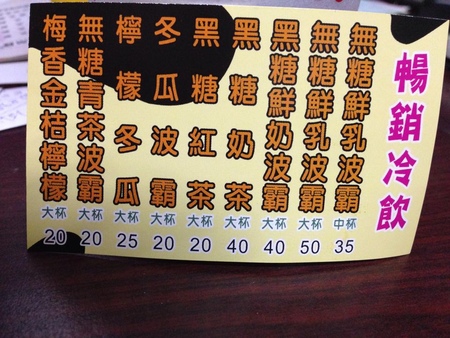 暢銷冷飲
無糖鮮乳波霸
中杯
35
無糖鮮乳波霸
大杯
50
黑糖鮮奶波霸
大杯
40
黑糖奶茶
大杯
40
黑糖紅茶
大杯
20
冬瓜波霸
大杯
20
檸檬冬瓜
大杯
25
無糖青茶波霸
大杯
20
梅香金桔檸檬
大杯
20